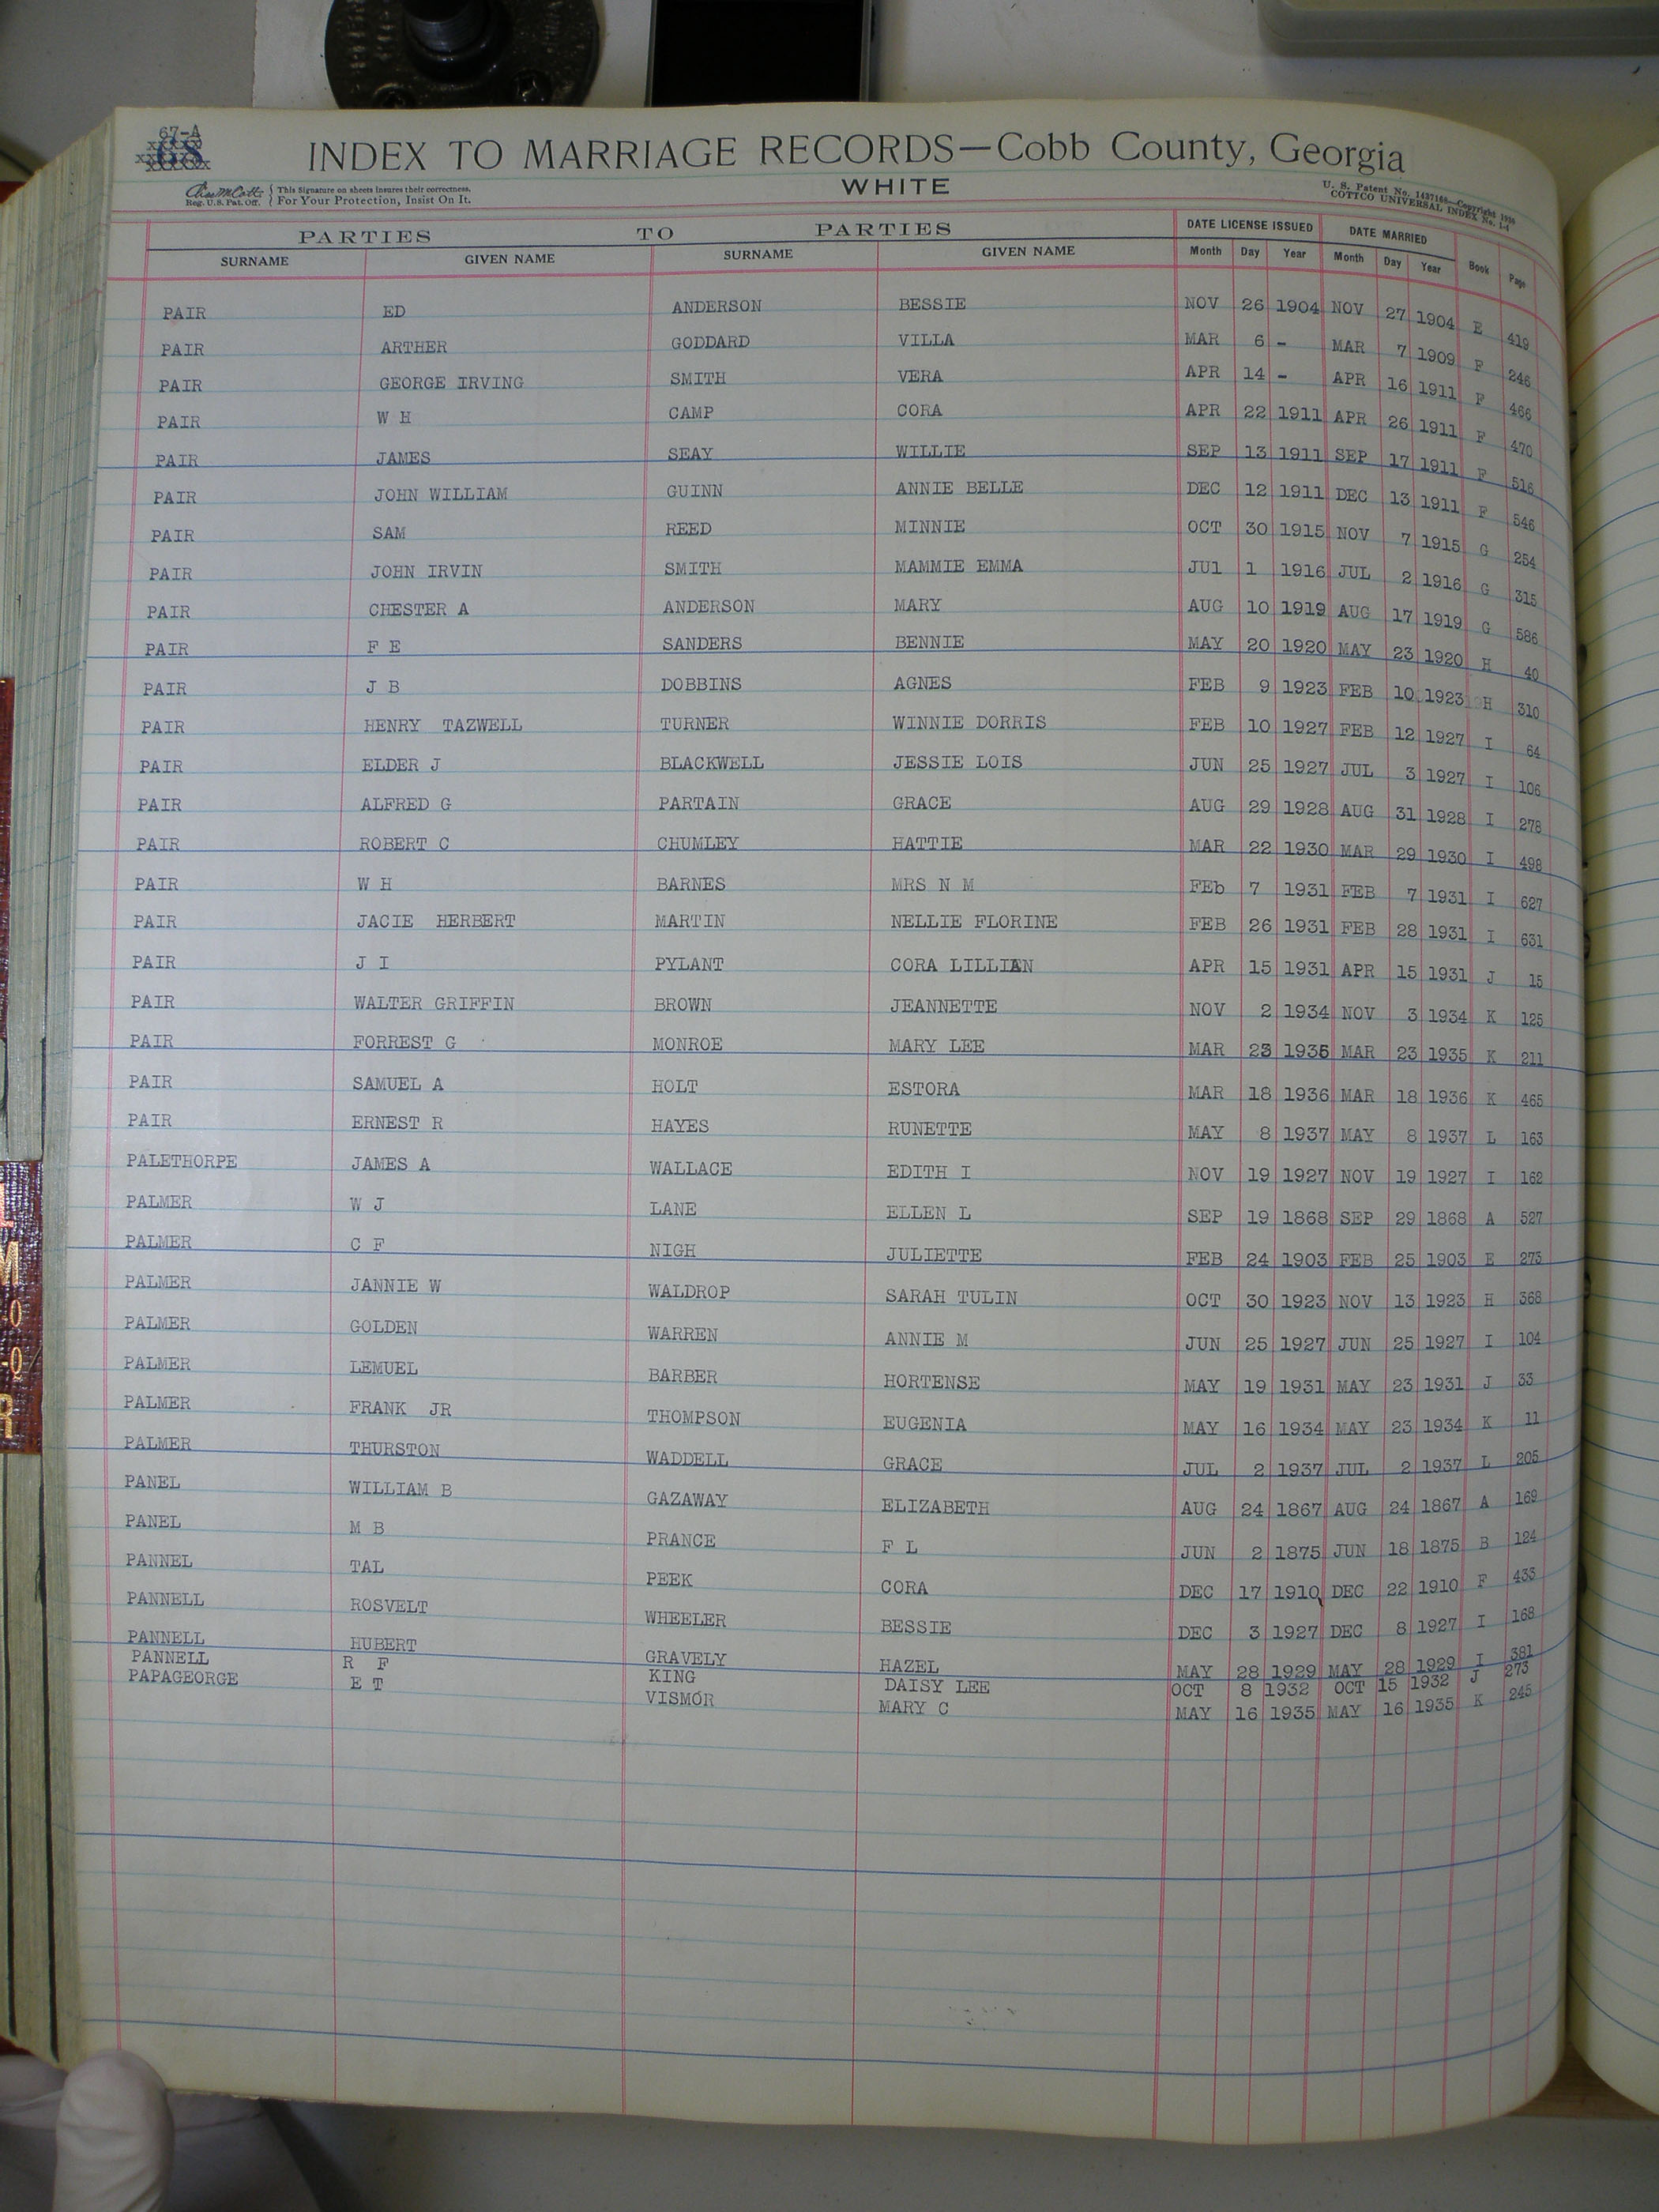 67-A
68
INDEX TO MARRIAGE RECORDS—Cobb County, Georgia
WHITE
This Signature on sheets insures their correctness.
Reg. U.S. Pat. Off. For Your Protection, Insist On It.
U. S. Patent No. 1497168—Copyright 1930
COTTCO UNIVERSAL INDEX No. 1-4
PARTIES TO PARTIES DATE LICENSE ISSUED DATE MARRIED
SURNAME GIVEN NAME SURNAME GIVEN NAME Month Day Year Month Day Year Book Page
PAIR ED ANDERSON BESSIE NOV 26 1904 NOV 27 1904 E 419
PAIR ARTHER GODDARD VILLA MAR 6 - MAR 7 1909 F 246
PAIR GEORGE IRVING SMITH VERA APR 14 - APR 16 1911 F 466
PAIR W H CAMP CORA APR 22 1911 APR 26 1911 F 470
PAIR JAMES SEAY WILLIE SEP 13 1911 SEP 17 1911 F 516
PAIR JOHN WILLIAM GUINN ANNIE BELLE DEC 12 1911 DEC 13 1911 F 546
PAIR SAM REED MINNIE OCT 30 1915 NOV 7 1915 G 254
PAIR JOHN IRVIN SMITH MAMMIE EMMA JUl 1 1916 JUL 2 1916 G 315
PAIR CHESTER A ANDERSON MARY AUG 10 1919 AUG 17 1919 G 586
PAIR F E SANDERS BENNIE MAY 20 1920 MAY 23 1920 H 40
PAIR J B DOBBINS AGNES FEB 9 1923 FEB 10 1923 H 310
PAIR HENRY TAZWELL TURNER WINNIE DORRIS FEB 10 1927 FEB 12 1927 I 64
PAIR ELDER J BLACKWELL JESSIE LOIS JUN 25 1927 JUL 3 1927 I 106
PAIR ALFRED G PARTAIN GRACE AUG 29 1928 AUG 31 1928 I 278
PAIR ROBERT C CHUMLEY HATTIE MAR 22 1930 MAR 29 1930 I 498
PAIR W H BARNES MRS N M FEb 7 1931 FEB 7 1931 I 627
PAIR JACIE HERBERT MARTIN NELLIE FLORINE FEB 26 1931 FEB 28 1931 I 631
PAIR J I PYLANT CORA LILLIAN APR 15 1931 APR 15 1931 J 15
PAIR WALTER GRIFFIN BROWN JEANNETTE NOV 2 1934 NOV 3 1934 K 125
PAIR FORREST G MONROE MARY LEE MAR 23 1935 MAR 23 1935 K 211
PAIR SAMUEL A HOLT ESTORA MAR 18 1936 MAR 18 1936 K 465
PAIR ERNEST R HAYES RUNETTE MAY 8 1937 MAY 8 1937 L 163
PALETHORPE JAMES A WALLACE EDITH I NOV 19 1927 NOV 19 1927 I 162
PALMER W J LANE ELLEN L SEP 19 1868 SEP 29 1868 A 527
PALMER C F NIGH JULIETTE FEB 24 1903 FEB 25 1903 E 273
PALMER JANNIE W WALDROP SARAH TULIN OCT 30 1923 NOV 13 1923 H 368
PALMER GOLDEN WARREN ANNIE M JUN 25 1927 JUN 25 1927 I 104
PALMER LEMUEL BARBER HORTENSE MAY 19 1931 MAY 23 1931 J 33
PALMER FRANK JR THOMPSON EUGENIA MAY 16 1934 MAY 23 1934 K 11
PALMER THURSTON WADDELL GRACE JUL 2 1937 JUL 2 1937 L 205
PANEL WILLIAM B GAZAWAY ELIZABETH AUG 24 1867 AUG 24 1867 A 169
PANEL M B PRANCE F L JUN 2 1875 JUN 18 1875 B 124
PANNEL TAL PEEK CORA DEC 17 1910 DEC 22 1910 F 433
PANNELL ROSVELT WHEELER BESSIE DEC 3 1927 DEC 8 1927 I 168
PANNELL HUBERT GRAVELY HAZEL MAY 28 1929 MAY 28 1929 I 381
PANNELL R F KING DAISY LEE OCT 8 1932 OCT 15 1932 J 273
PAPAGEORGE E T VISMOR MARY C MAY 16 1935 MAY 16 1935 K 245